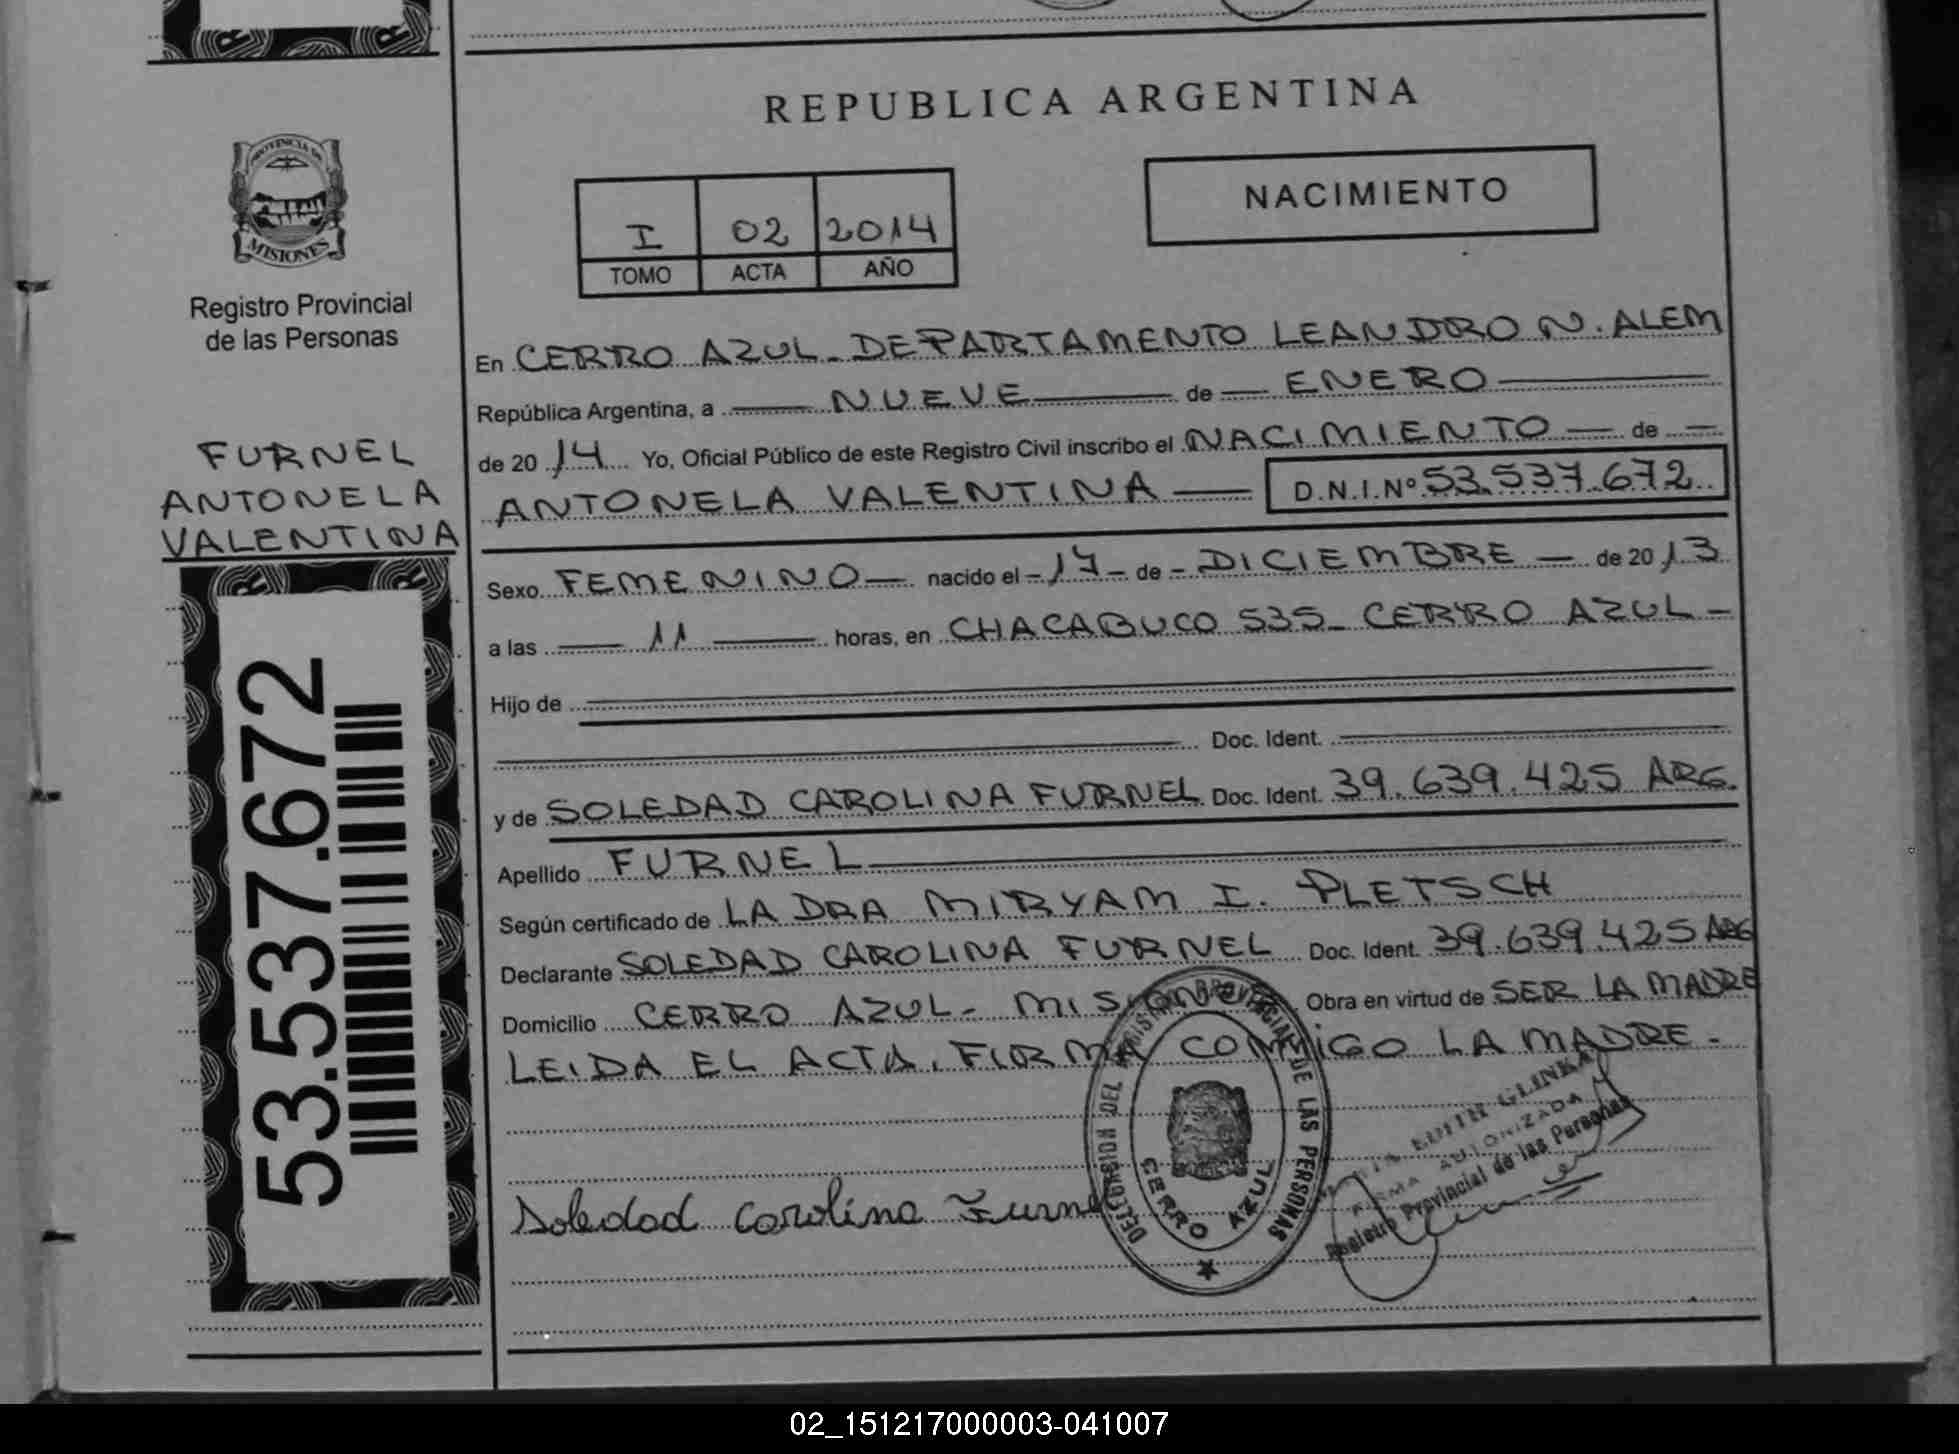 REPUBLICA ARGENTINA
PROVINCIA DE
MISIONES
Registro Provincial
de las Personas
NACIMIENTO
I 02 2014
TOMO ACTA AÑO
FURNEL
ANTONELA
VALENTINA
53.537.672
En CERRO AZUL - DEPARTAMENTO LEANDRO N. ALEM
República Argentina, a NUEVE de ENERO
de 2014 Yo, Oficial Público de este Registro Civil inscribo el NACIMIENTO de
ANTONELA VALENTINA D.N.I.Nº 53.537.672
Sexo FEMENINO nacido el 17 de DICIEMBRE de 2013
a las 11 horas, en CHACABUCO 535 - CERRO AZUL -
Hijo de
Doc. Ident.
y de SOLEDAD CAROLINA FURNEL Doc. Ident. 39.639.425 ARG.
Apellido FURNEL
Según certificado de LA DRA MIRYAM I. PLETSCH
Declarante SOLEDAD CAROLINA FURNEL Doc. Ident. 39.639.425 ARG
Domicilio CERRO AZUL - MISIONES Obra en virtud de SER LA MADRE
LEIDA EL ACTA, FIRMA CONMIGO LA MADRE.
Soledad Carolina Furnel
DELEGACION DEL REGISTRO PROVINCIAL DE LAS PERSONAS
CERRO AZUL
EDITH GLINKA
FIRMA AUTORIZADA
Registro Provincial de las Personas
02_151217000003-041007